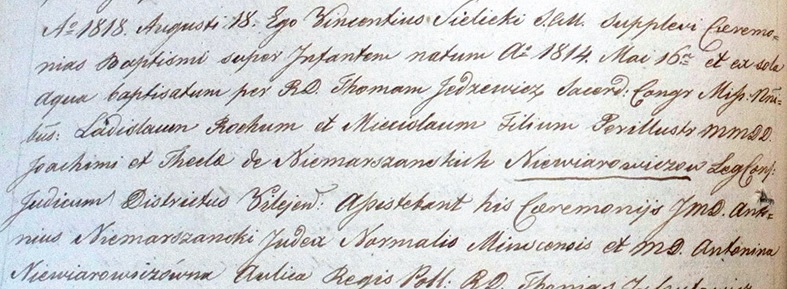 Aº 1818. Augusti 18. Ego Vincentius Sielicki S.C.M. Supplevi Cæremo=
nias Baptismi super Infantem natum Aº 1814. Mai 16 et ex sola
aqua baptisatum per R.D. Thomam Jedzewicz Sacerd: Congr Miss. Nni=
bus: Ladislaum Rochum et Miecislaum Filium Perillustr MMDD.
Joachimi et Theclæ de Niemarszanskich Niewiarowiczow Leg Conj:
Judicum Districtus Vilejen: Assistebant his Cæremonijs JMD. Anto=
nius Niemarszanski Judex Normalis Minscensis et MD. Antonina
Niewiarowiczówna Aulica Regis Poll: RD. Thomas